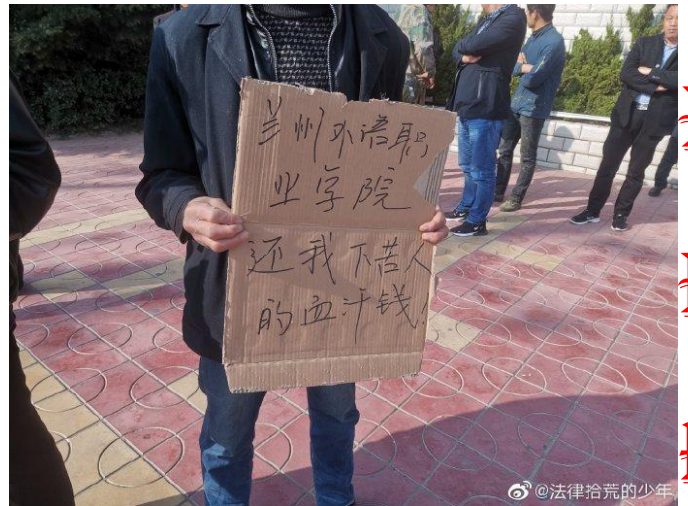 兰州外语职
业学院
还我下苦人
的血汗钱!
@法律拾荒的少年